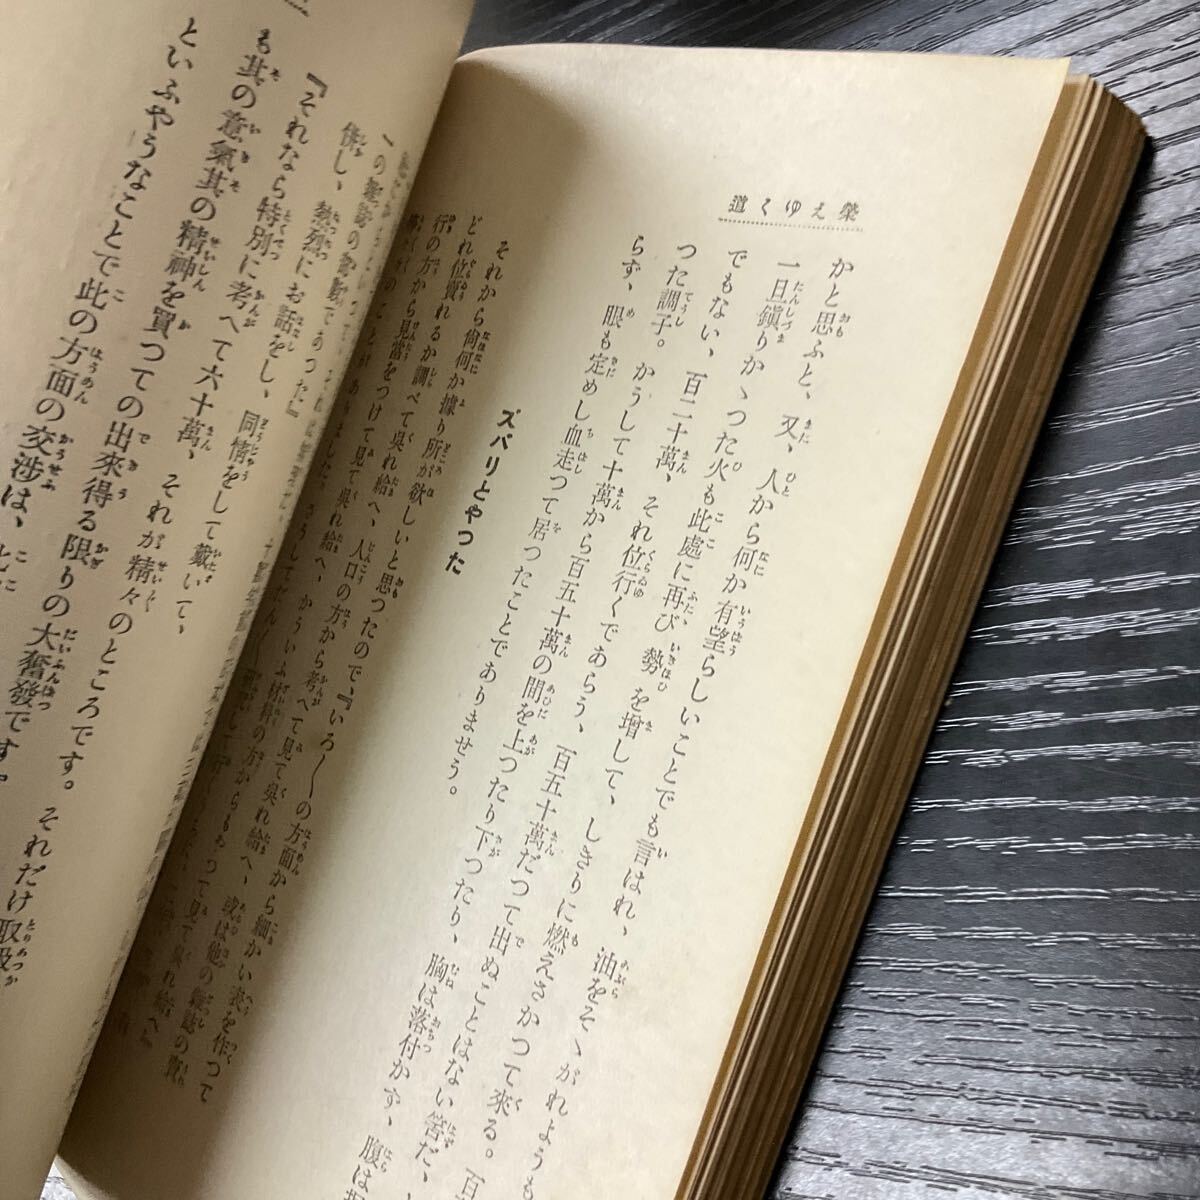 榮えゆく道
かと思ふと、又、人から何か有望らしいことでも言はれ、油をそゝがれようも
一旦鎭りかゝつた火も此處に再び勢を增して、しきりに燃えさかつて來る。百
でもない、百二十萬、それ位行くであらう、百五十萬だつて出ぬことはない筈だ、
つた調子。かうして十萬から百五十萬の間を上つたり下つたり、胸は落付かず、腹は
らず、眼も定めし血走つて居つたことでありませう。
ズバリとやつた
それから尙何か據り所が欲しいと思つたので、『いろ〳〵の方面から細かい表を作つて
どれ位賣れるか調べて見て吳れ給へ、人口の方から考へて見て吳れ給へ、或は他の雜誌の賣
行の方から見當をつけて見て吳れ給へ、かういふ材料の方からもやつて見て吳れ給へ』
のことがありました。さうしてだん〳〵
の雜誌の
併し、熱烈にお話をし、同情をして戴いて、
『それなら特別に考へて六十萬、それが精々のところです。それだけ取扱
も其の意氣其の精神を買つての出來得る限りの大奮發です。
といふやうなことで此の方面の交涉は、